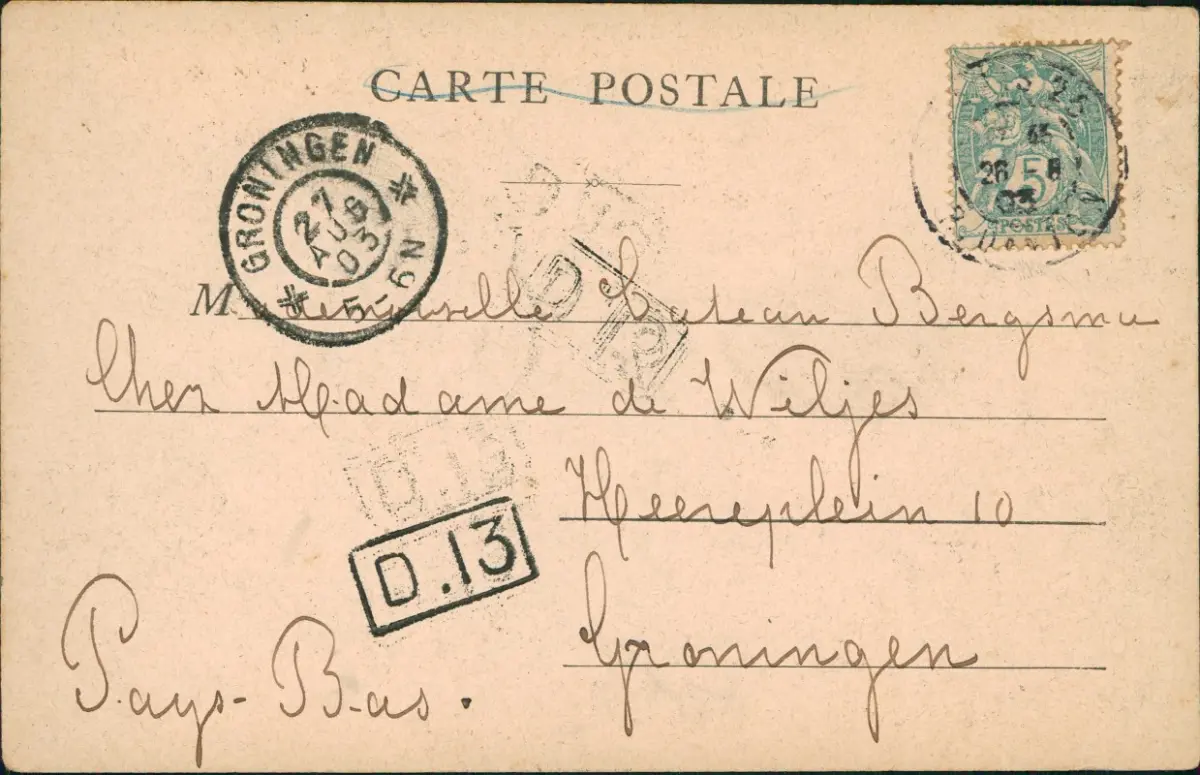 CARTE POSTALE
GRONINGEN
27
AUG
03
5-6N
25
26
03
5
POSTES
Mademoiselle Bergsma
Chez Madame de Wiljes
Heereplein 10
Groningen
D.13
D.13
D.13
Pays-Bas.